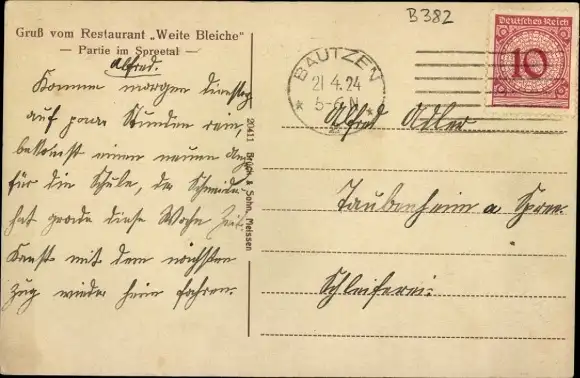 B382
Gruß vom Restaurant „Weite Bleiche"
— Partie im Spreetal —
Alfred.
Komme morgen Dienstag
auf paar Stunden rein,
bekommst einen neuen Anzug
für die Schule, der Schneider
hat grade diese Woche Zeit.
Kannst mit dem nächsten
Zug wieder heim fahren.
20411 Brück & Sohn, Meissen
BAUTZEN
21.4.24
5-6 N
Deutsches Reich
10
Alfred Adler
Taubenheim a Spree.
Schleiferei.